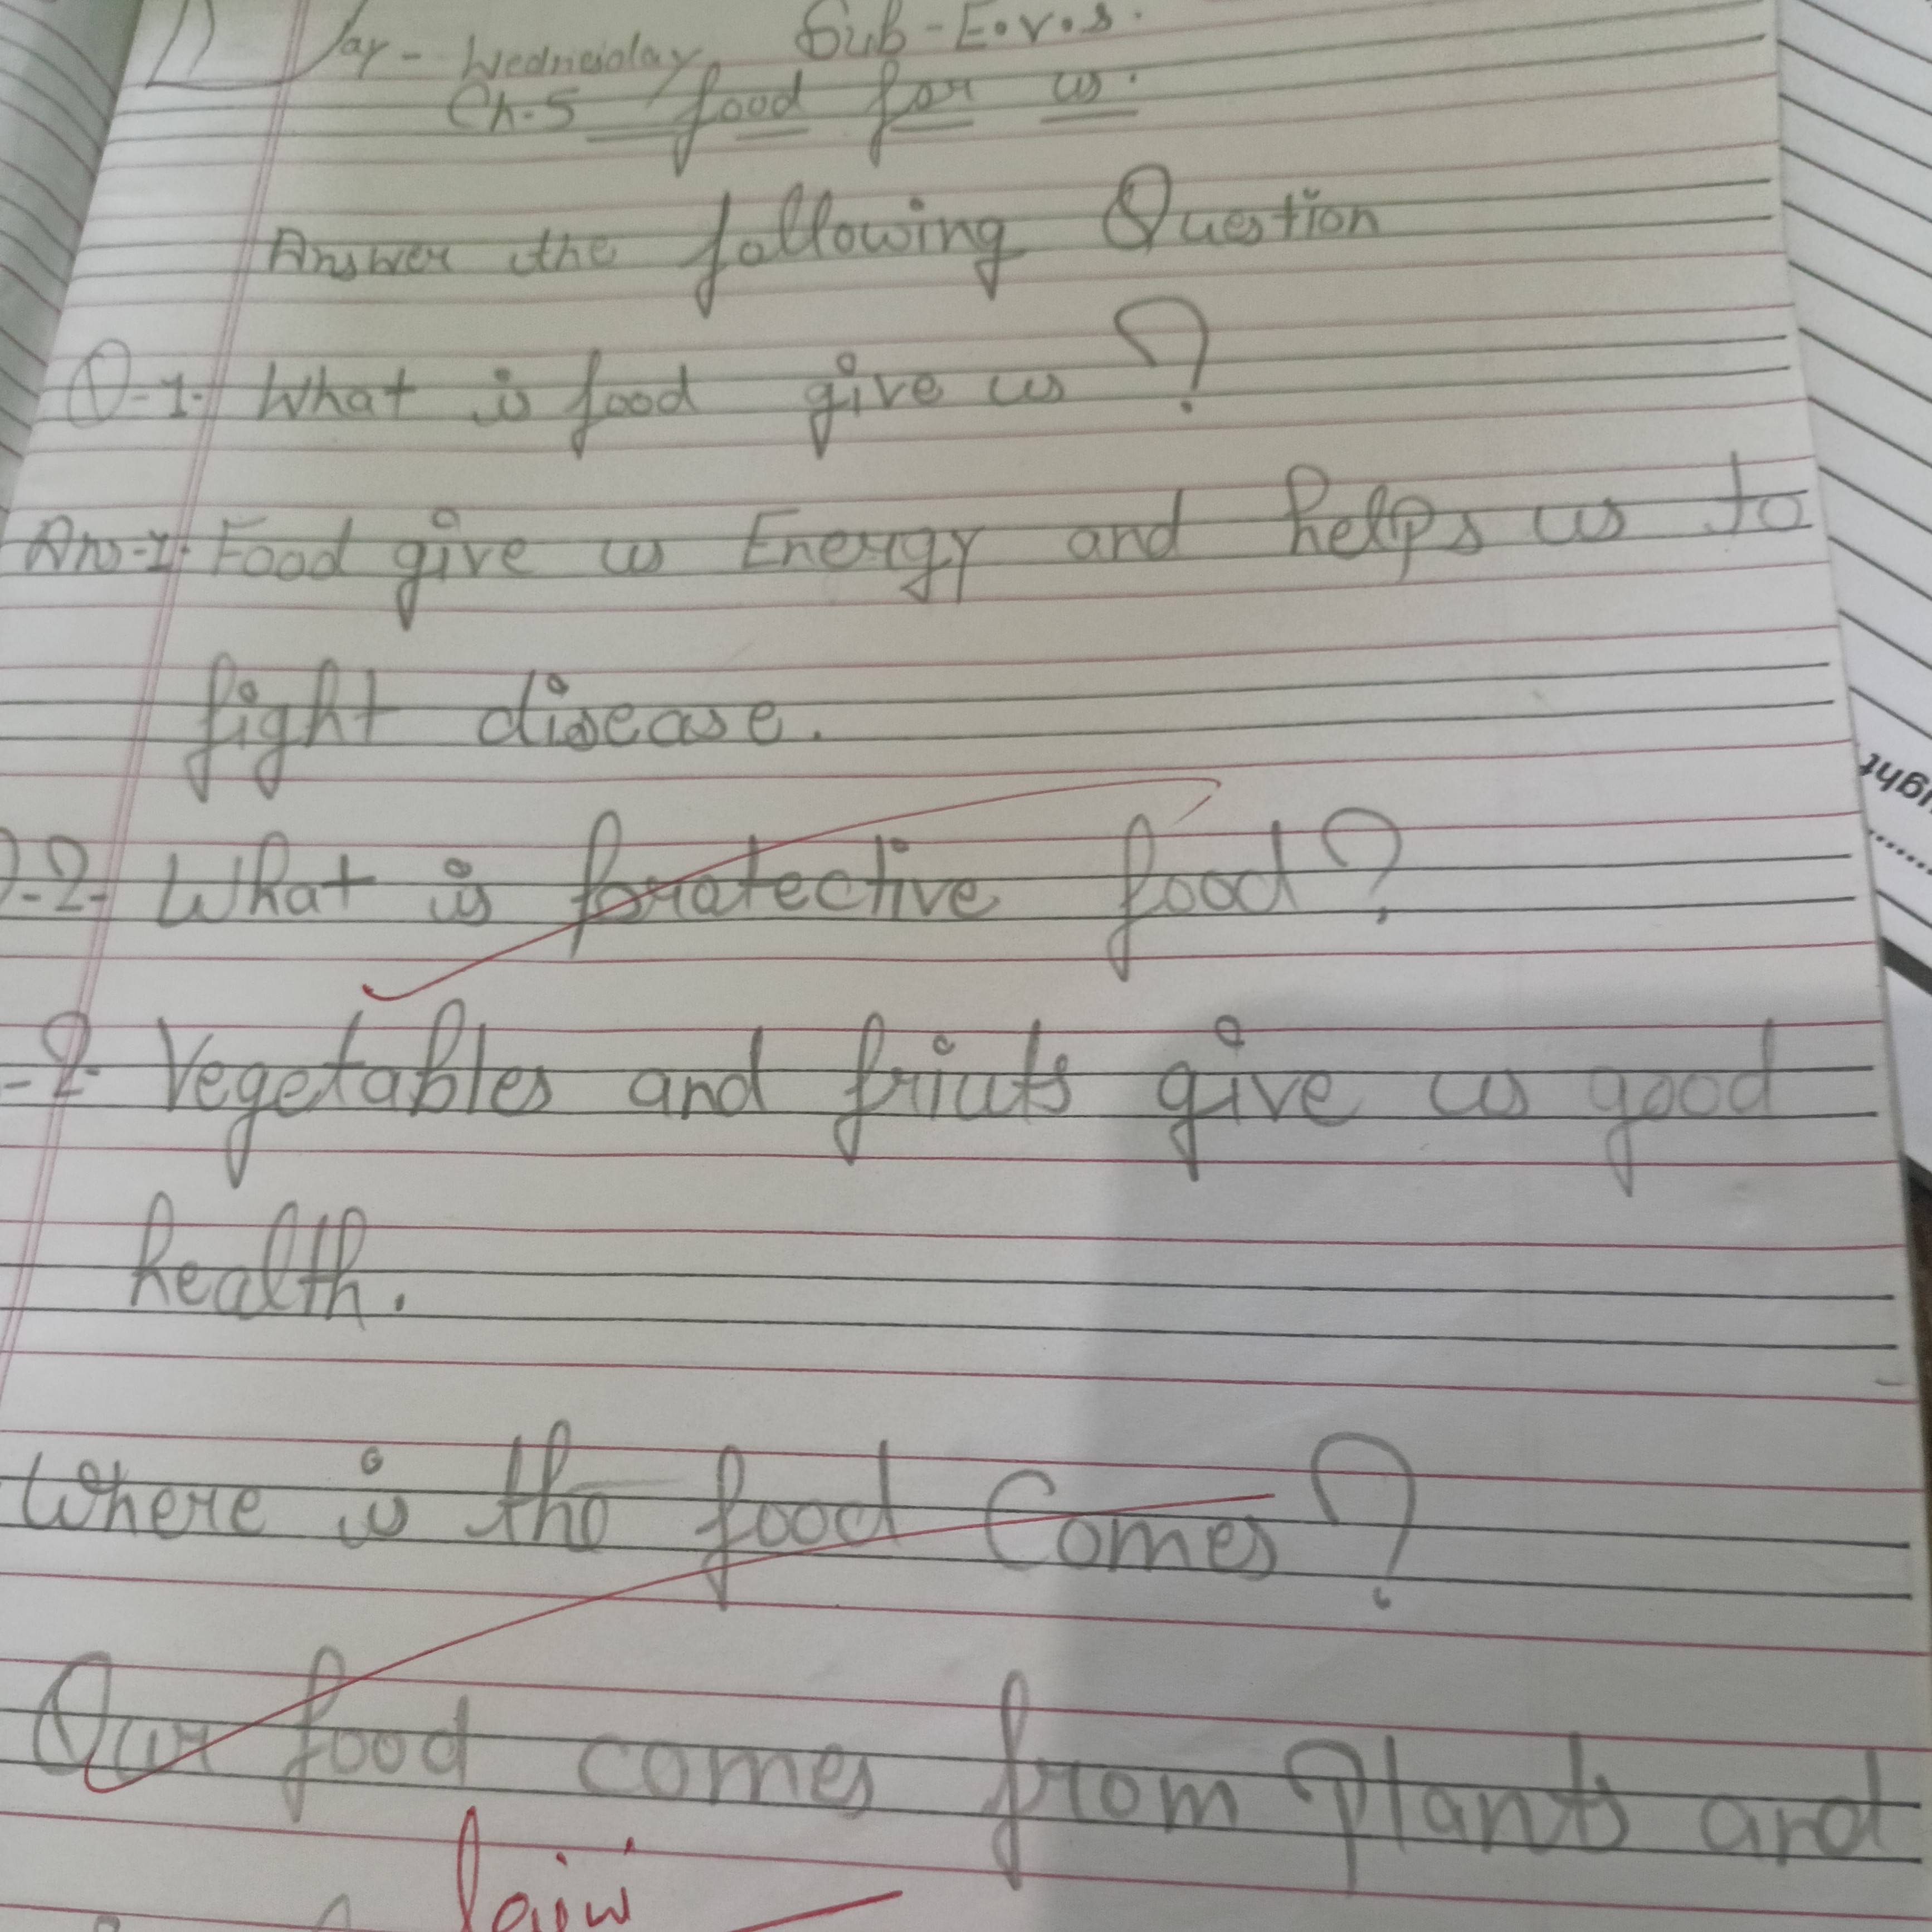 Day - Wednesday Sub - E.v.s.
Ch.5 food for us.
Answer the following Question
Q-1. What is food give us ?
Ans-1. Food give us Energy and helps us to
fight disease.
-2- What is protective food?
-2- Vegetables and friuts give us good
health.
Where is the food Comes ?
Our food comes from Plants and
ght